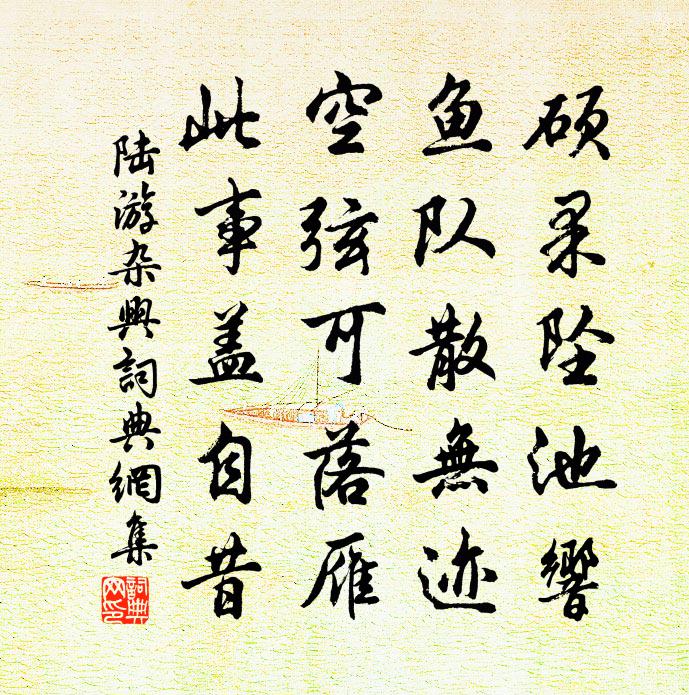 硕果坠池響
鱼队散無迹
空弦可落雁
此事盖自昔
陆游杂興詞典網集
詞典網印